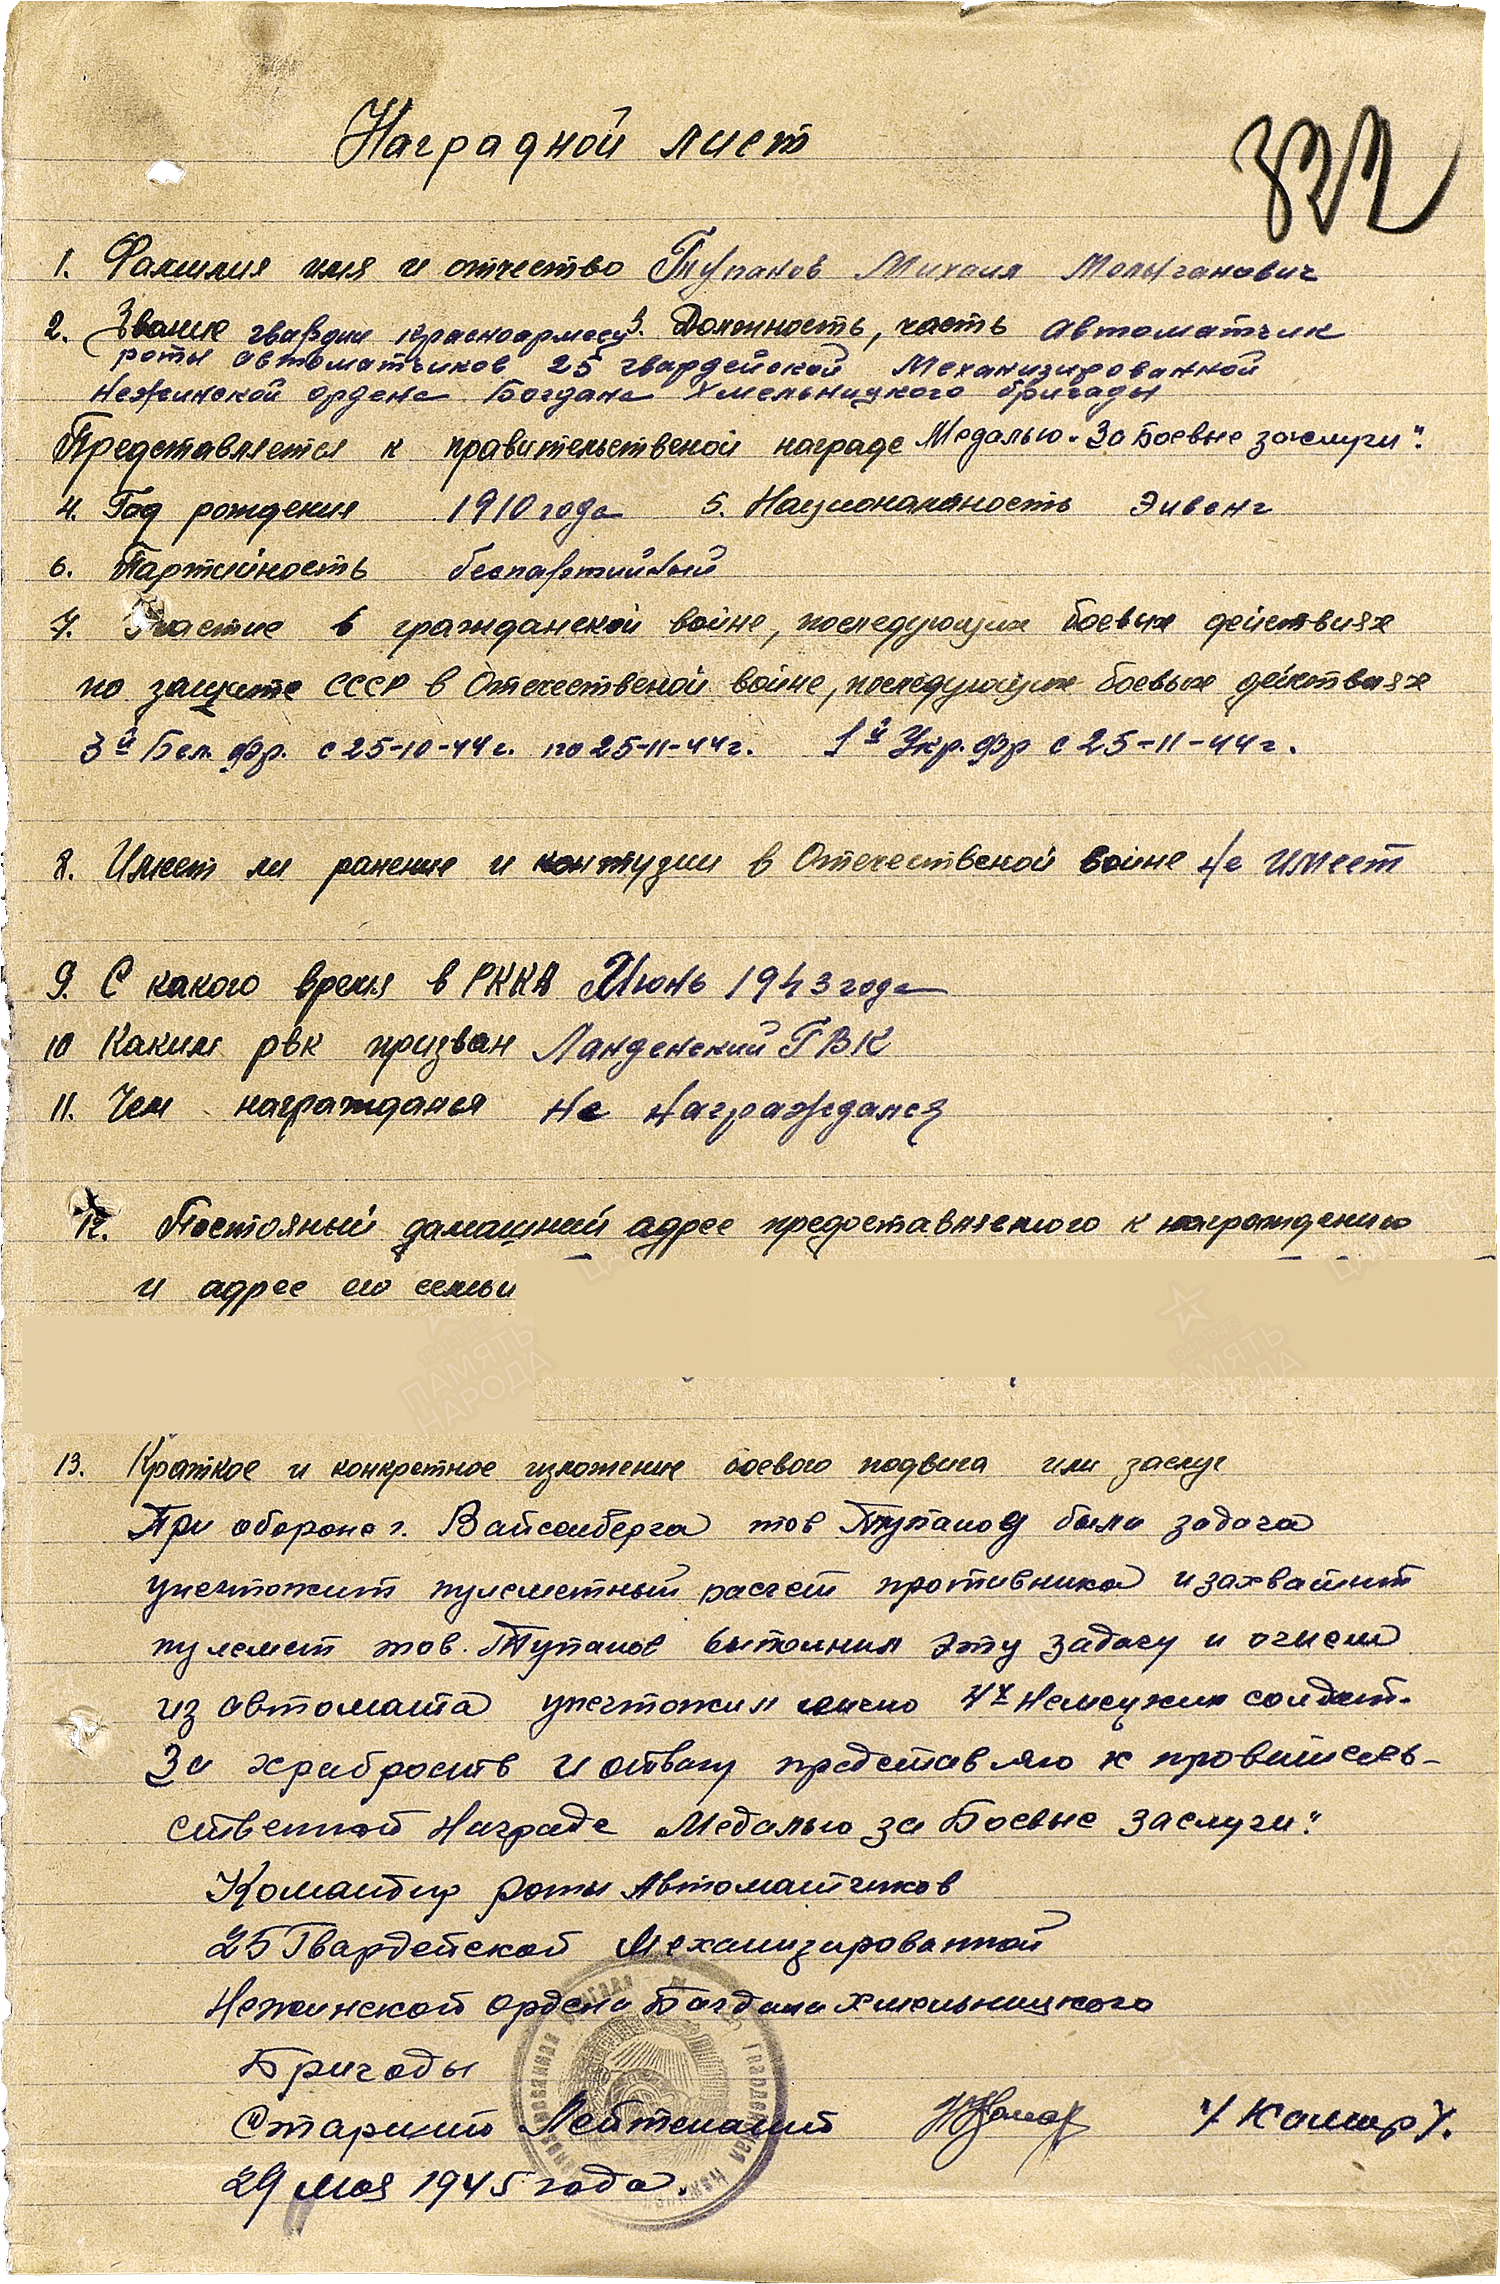 Наградной лист
322
1. Фамилия имя и отчество Тупанов Михаил
2. Звание гвардии красноармеец 3. Должность, часть автоматчик
роты автоматчиков 25 гвардейской Механизированной
Нежинской ордена Богдана Хмельницкого бригады
Представляется к правительственой награде Медалью "За Боевые заслуги".
4. Год рождения 1910 года 5. Национальность Эивенг
6. Партийность беспартийный
7. Участие в гражданской войне, последующих боевых действиях
по защите СССР в Отечественой войне, последующих боевых действиях
3й Бел. Фр. с 25-10-44г. по 25-11-44г. 1й Укр. Фр с 25-11-44г.
8. Имеет ли ранение и контузии в Отечественой войне Не имеет
9. С какого время в РККА Июнь 1943 года
10 Каким рвк призван ГВК
11. Чем награждался Не Награждался
12. Постояный дамашний адрес предоставляемого к награждению
и адрес его семьи
ПАМЯТЬ НАРОДА
ПАМЯТЬ НАРОДА
13. Краткое и конкретное изложение боевого подвига или заслуг
При обороне г. Вайсенберга тов Тупанову была задача
унечтожит пулеметный расчет противника и захватит
пулемет тов. Тупанов выполнил эту задачу и огнем
из автомата унечтожил лично 4х Немецких солдат.
За храбрость и отвагу представляю к правитель-
ственной Награде Медалью за Боевые заслуги".
Командир роты Автоматчиков
25 Гвардейской Механизированной
Нежинской ордена Богдана Хмельницкого
Бригады
Старший Лейтенант /Кашир/.
29 мая 1945 года.